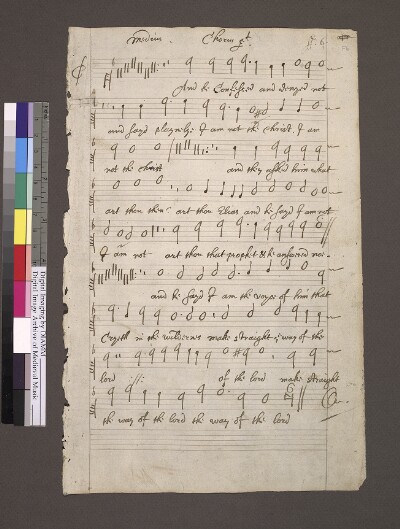 Medius Chorus
And he Confessed and denyed not
and sayd playnely I am not the christ. I am
not the christ and they asked him what
art thou then: art thou Elias and he sayd I am not
I am not art thou that prophet & he answered noe.
and he sayd I am the voyce of him that
Cryeth in the wildernes make straight ye way of the
lord of the lord make straight
the way of the lord the way of the lord
Digital Imaging by DIAMM
Digital Image Archive of Medieval Music